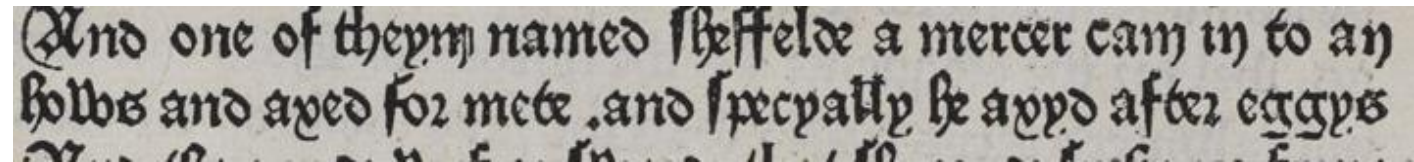 And one of theym named sheffelde a mercer cam in to an
hows and axed for mete .and specyally he axyd after eggys